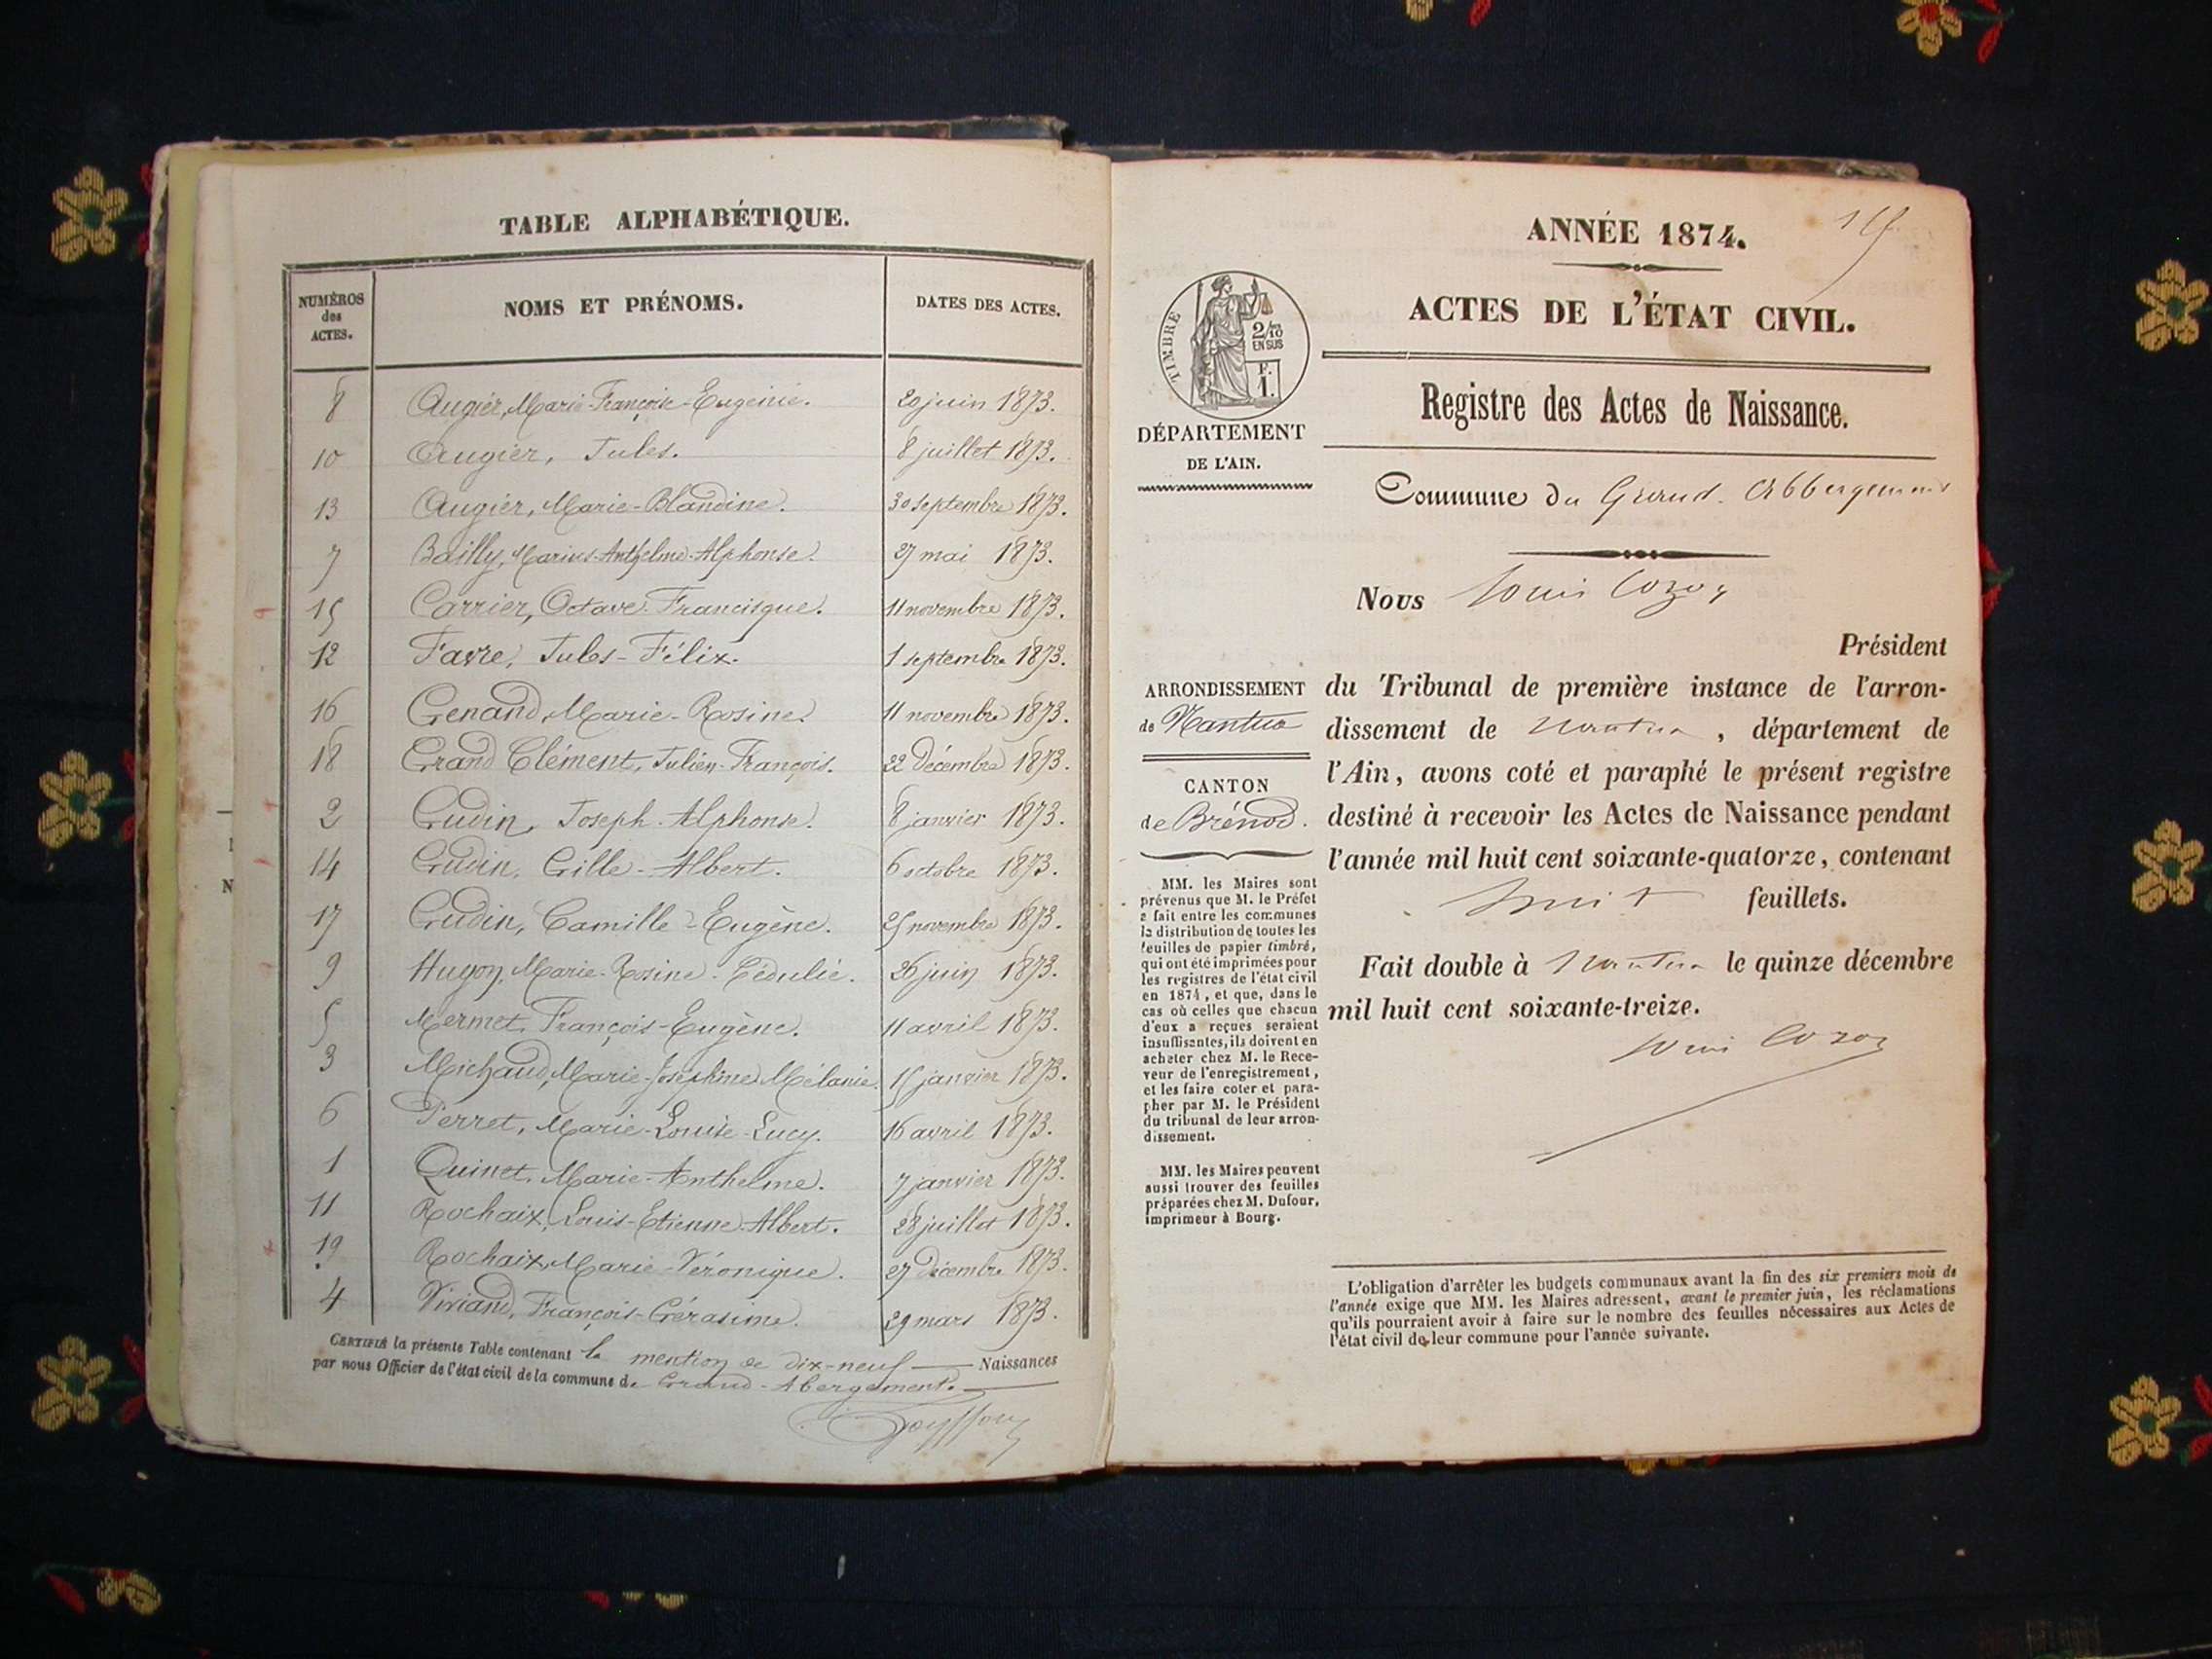 TABLE ALPHABÉTIQUE.
NUMÉROS des ACTES. NOMS ET PRÉNOMS. DATES DES ACTES.
8 Augier, Marie-Françoise-Eugénie. 20 juin 1873.
10 Augier, Jules. 8 juillet 1873.
13 Augier, Marie-Blandine. 30 septembre 1873.
7 Bailly, Marius-Anthelme-Alphonse. 27 mai 1873.
15 Carrier, Octave-Francisque. 11 novembre 1873.
12 Favre, Jules-Félix. 1 septembre 1873.
16 Genand, Marie-Rosine. 11 novembre 1873.
18 Grand Clément, Julien-François. 22 Décembre 1873.
2 Gudin, Joseph-Alphonse. 8 janvier 1873.
14 Gudin, Gille-Albert. 6 octobre 1873.
17 Gudin, Camille-Eugène. 25 novembre 1873.
9 Hugon, Marie-Rosine-Cédulie. 26 juin 1873.
5 Mermet, François-Eugène. 11 avril 1873.
3 Michaud, Marie-Joséphine Mélanie. 15 janvier 1873.
6 Perret, Marie-Louise-Lucy. 16 avril 1873.
1 Quinet, Marie-Anthelme. 7 janvier 1873.
11 Rochaix, Louis-Etienne-Albert. 28 juillet 1873.
19 Rochaix, Marie-Véronique. 27 décembre 1873.
4 Viviand, François-Gérasime. 29 mars 1873.
CERTIFIÉ la présente Table contenant la mention de dix-neuf Naissances
par nous Officier de l'état civil de la commune de Grand-Abergement.
ANNÉE 1874.
ACTES DE L'ÉTAT CIVIL.
TIMBRE
2/10 EN SUS
F. 1.
DÉPARTEMENT
DE L'AIN.
Registre des Actes de Naissance.
Commune du Grand-Abbergement
Nous Louis Cozon
Président
ARRONDISSEMENT
de Nantua
CANTON
de Brénod.
du Tribunal de première instance de l'arron-
dissement de Nantua, département de
l'Ain, avons coté et paraphé le présent registre
destiné à recevoir les Actes de Naissance pendant
l'année mil huit cent soixante-quatorze, contenant
huit feuillets.
Fait double à Nantua le quinze décembre
mil huit cent soixante-treize.
Louis Cozon
MM. les Maires sont
prévenus que M. le Préfet
a fait entre les communes
la distribution de toutes les
feuilles de papier timbré,
qui ont été imprimées pour
les registres de l'état civil
en 1874, et que, dans le
cas où celles que chacun
d'eux a reçues seraient
insuffisantes, ils doivent en
acheter chez M. le Rece-
veur de l'enregistrement,
et les faire coter et para-
pher par M. le Président
du tribunal de leur arron-
dissement.
MM. les Maires peuvent
aussi trouver des feuilles
préparées chez M. Dufour,
imprimeur à Bourg.
L'obligation d'arrêter les budgets communaux avant la fin des six premiers mois de
l'année exige que MM. les Maires adressent, avant le premier juin, les réclamations
qu'ils pourraient avoir à faire sur le nombre des feuilles nécessaires aux Actes de
l'état civil de leur commune pour l'année suivante.